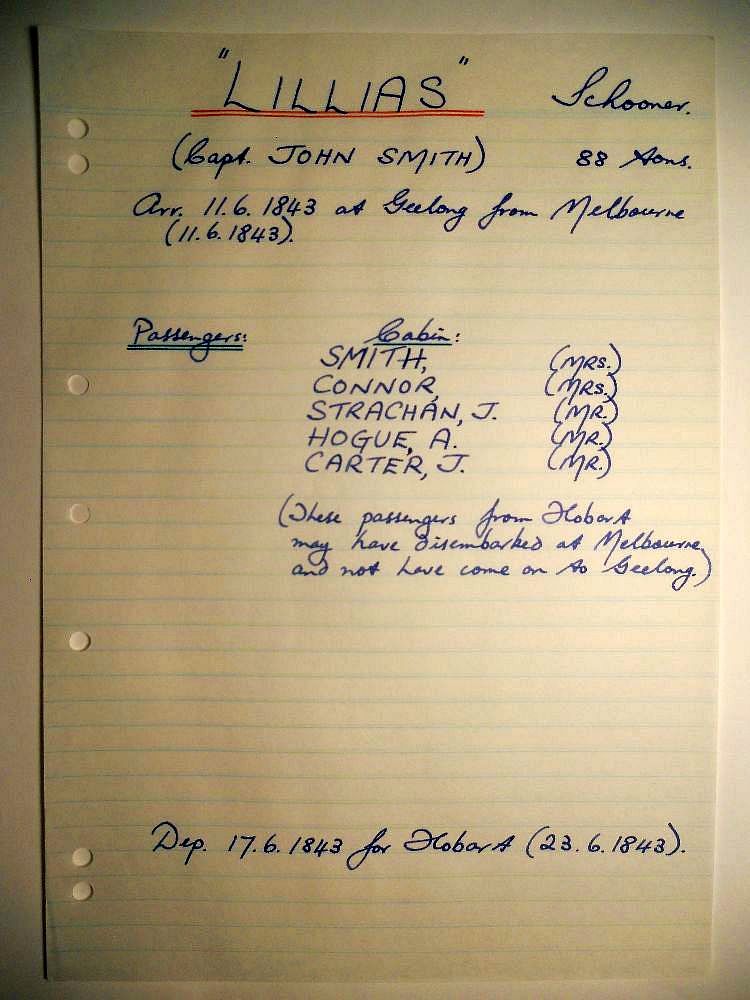 "LILLIAS" Schooner.
(Capt. JOHN SMITH) 88 tons.
Arr. 11.6.1843 at Geelong from Melbourne
(11.6.1843).
Passengers: Cabin:
SMITH, (MRS.)
CONNOR, (MRS.)
STRACHAN, J. (MR.)
HOGUE, A. (MR.)
CARTER, J. (MR.)
(These passengers from Hobart
may have disembarked at Melbourne,
and not have come on to Geelong.)
Dep. 17.6.1843 for Hobart (23.6.1843).